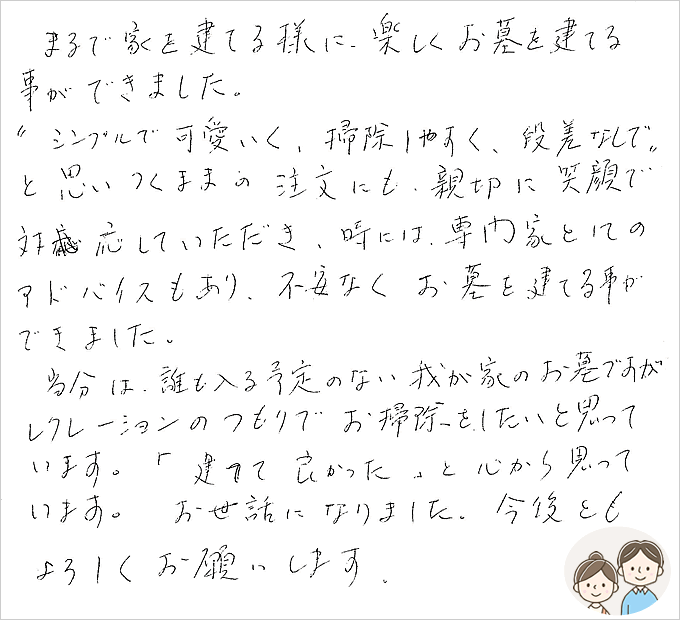 まるで家を建てる様に、楽しくお墓を建てる
事ができました。
〝シンプルで可愛いく、掃除しやすく、段差なしで〟
と思いつくままの注文にも、親切に笑顔で
対応していただき、時には、専門家としての
アドバイスもあり、不安なくお墓を建てる事が
できました。
当分は、誰も入る予定のない我が家のお墓ですが
レクレーションのつもりでお掃除をしたいと思って
います。「建てて良かった」と心から思って
います。お世話になりました。今後とも
よろしくお願いします。